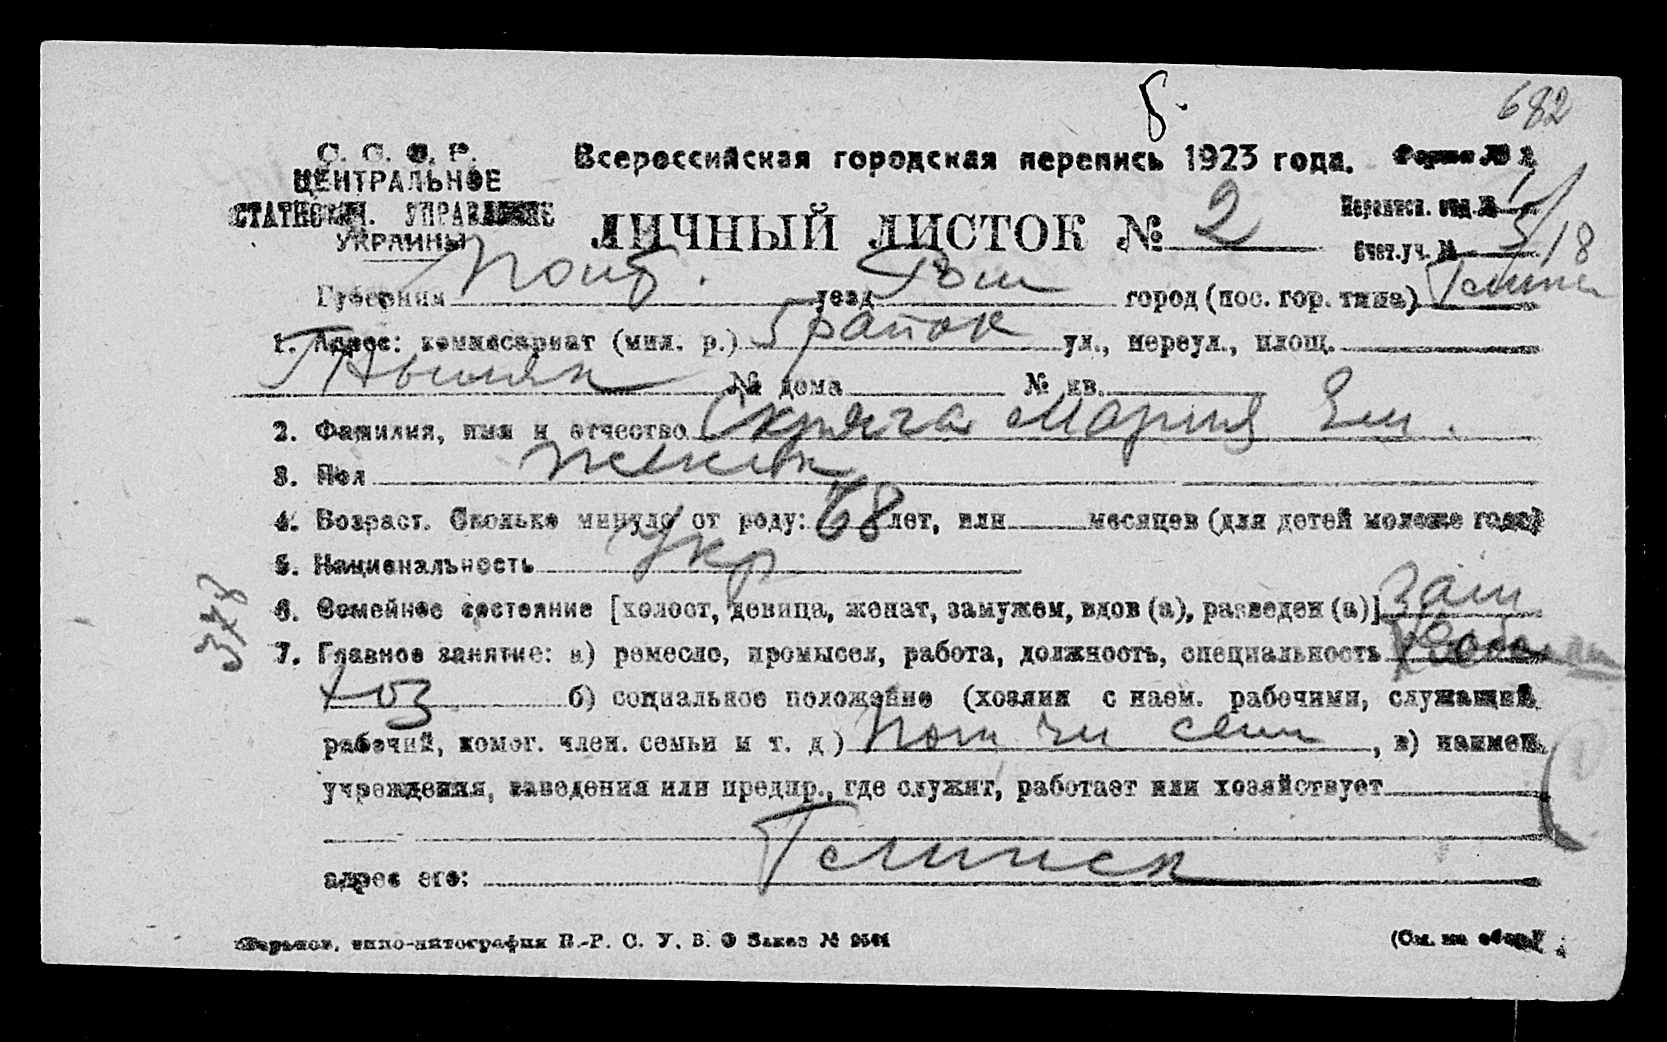 8.
682
С. С. С. Р.
ЦЕНТРАЛЬНОЕ
СТАТИСТИЧ. УПРАВЛЕНИЕ
УКРАИНЫ
Всероссийская городская перепись 1923 года. Форма № 2
ЛИЧНЫЙ ЛИСТОК № 2
Переписн. отд. № 1
Счет. уч. № 3/18
Губерния Полт. уезд Ром город (пос. гор. типа)
1. Адрес: комиссариат (мил. р.) 5 район ул., переул., площ.
№ дома № кв.
2. Фамилия, имя и отчество Скряга Мария Ем.
3. Пол женск
4. Возраст. Сколько минуло от роду: 68 лет, или месяцев (для детей моложе года)
5. Национальность Укр
6. Семейное состояние [холост, девица, женат, замужем, вдов (а), разведен (а)] зам
3778
7. Главное занятие: а) ремесло, промысел, работа, должность, специальность
хоз б) социальное положение (хозяин с наем. рабочими, служащий,
рабочий, комог. член. семьи и т. д.) Пом чл семи, в) наимен.
учреждения, заведения или предпр., где служит, работает или хозяйствует
адрес его:
Харьков, типо-литография В.-Р. С. У. В. О Заказ №
(См. на обор.)